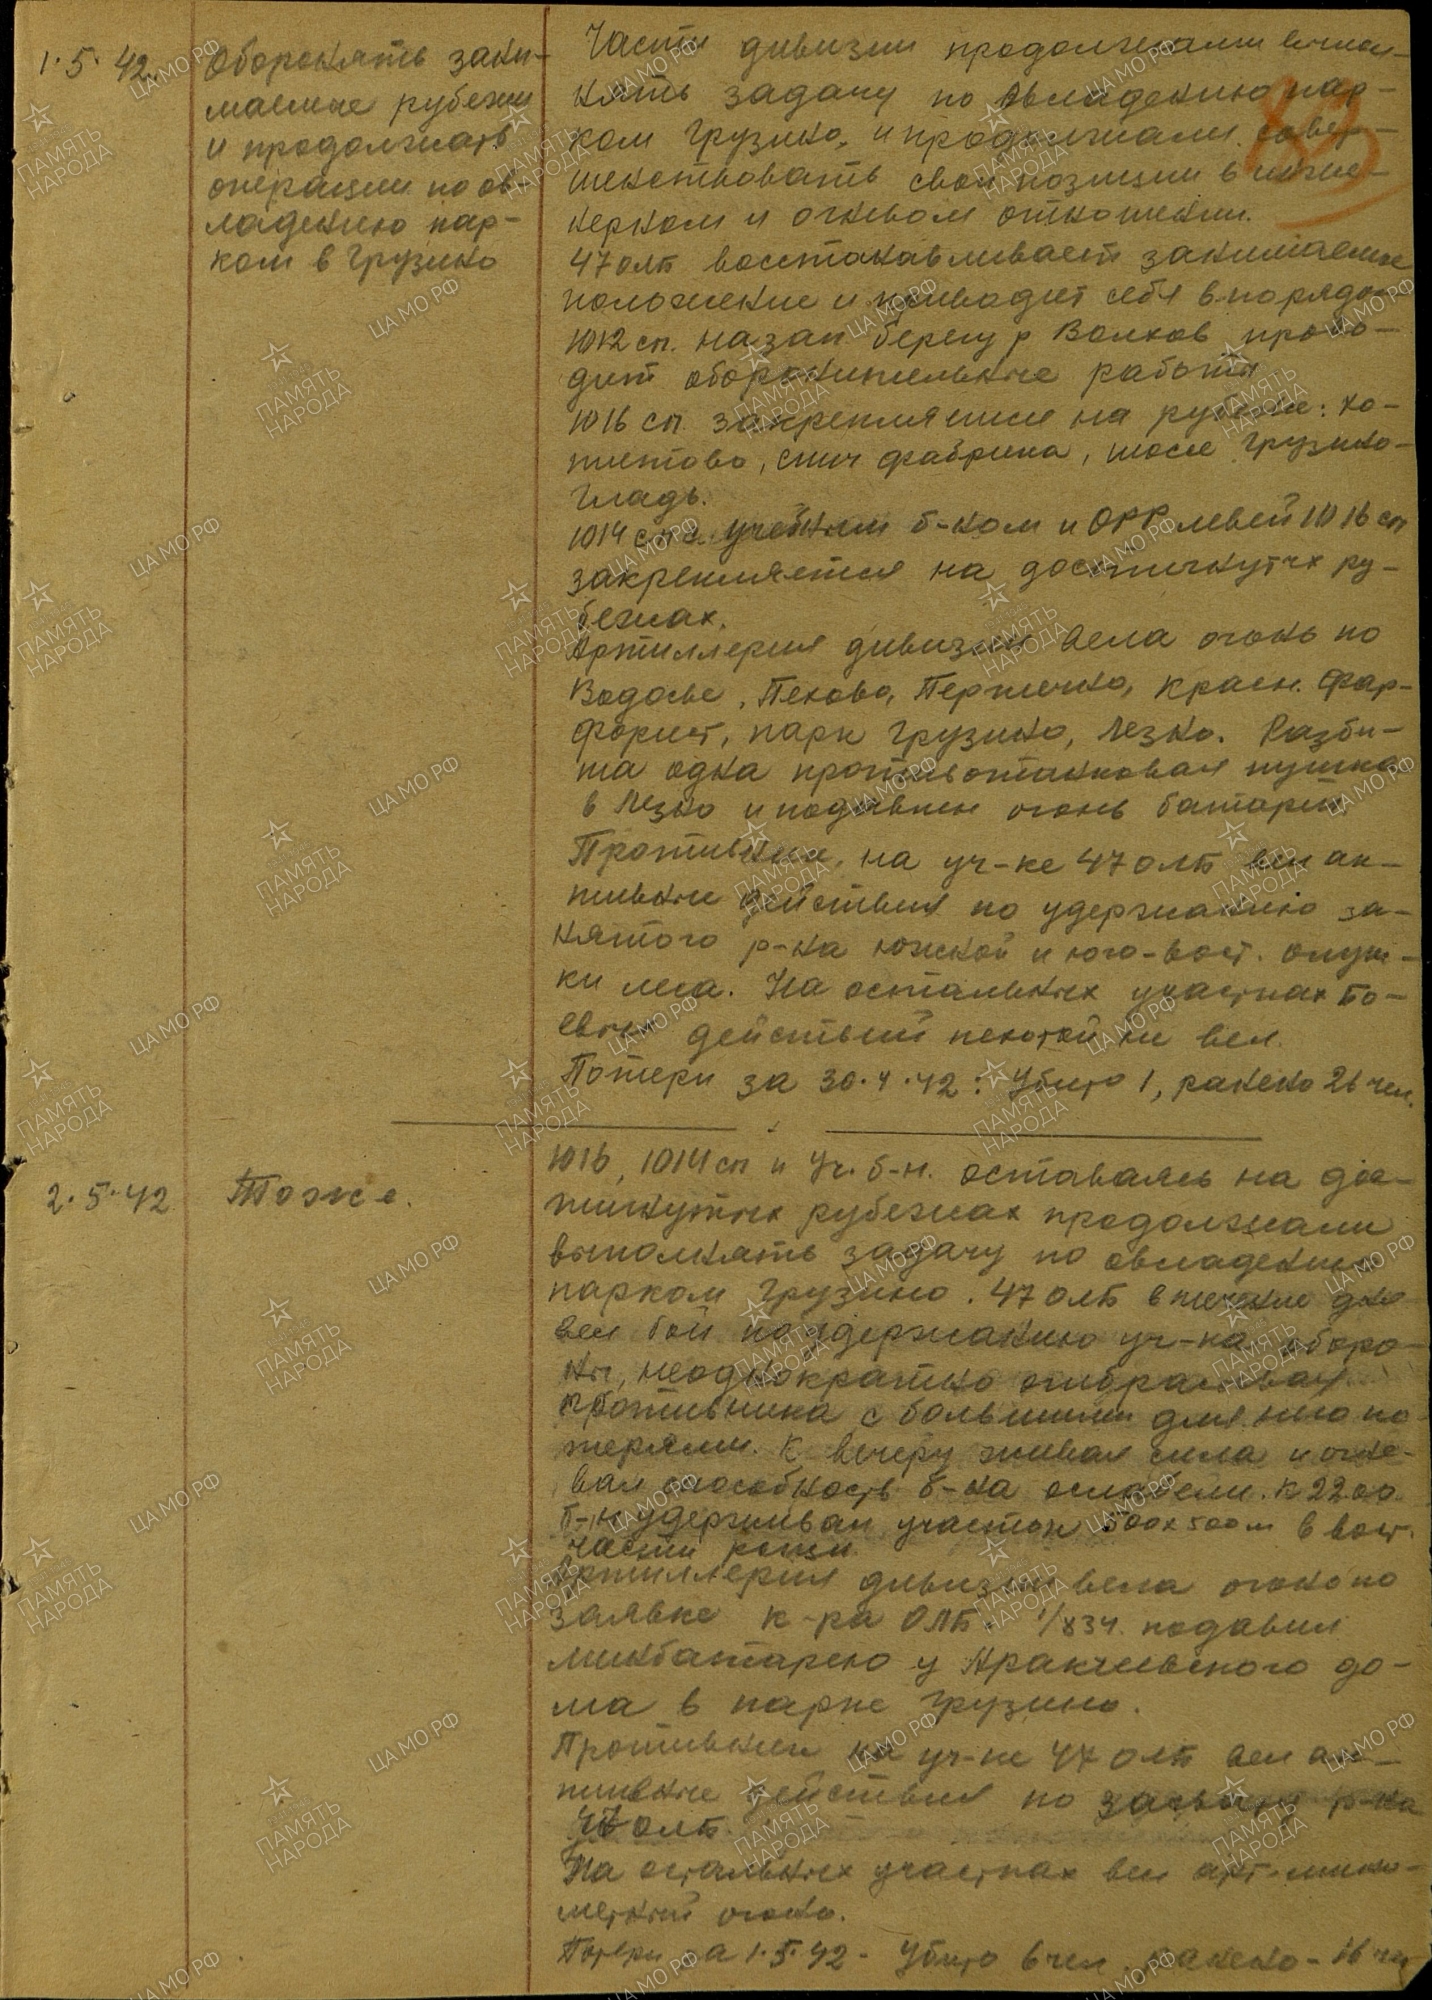 1.5.42.
Оборонять зани-
маемые рубежи
и продолжать
операции по ов-
ладению пар-
ком в Грузино
Части дивизии продолжали выпол-
нять задачу по овладению пар-
ком Грузино, и продолжали совер-
шенствовать свои позиции в инже-
нерном и огневом отношении.
47 олб восстанавливает занимаемое
положение и приводит себя в порядок
1012 сп. на зап берегу р Волхов прово-
дит оборонительные работы
1016 сп. закрепляется на рубеже: Хо-
титово, спич фабрика, шоссе Грузино-
Гладь.
1014 сп с учебным б-ном и ОРР левей 1016 сп
закрепляется на достигнутых ру-
бежах.
Артиллерия дивизии вела огонь по
Водосье, Пехово, Пертечно, Красн. Фар-
форист, парк Грузино, Лезно. Разби-
та одна противотанковая пушка
в Лезно и подавлен огонь батареи.
Противник, на уч-ке 47 олб вел ак-
тивные действия по удержанию за-
нятого р-на южной и юго-вост. опуш-
ки леса. На остальных участках бо-
евых действий пехотой не вел.
Потери за 30.4.42: Убито 1, ранено 26 чел.
2.5.42
Тоже.
1016, 1014 сп и Уч. б-н. оставаясь на дос-
тигнутых рубежах продолжали
выполнять задачу по овладению
парком Грузино. 47 олб в течение дня
вел бой по удержанию уч-ка оборо-
ны, неоднократно отбрасывая
противника с большими для него по-
терями. К вечеру живая сила и огне-
вая способность б-на ослабели. К 22.00
б-н удерживал участок 500х500м в вост.
части рощи
Артиллерия дивизии вела огонь по
заявке к-ра ОЛБ. 1/834. подавил
минбатарею у Аракчеевского до-
ма в парке Грузино.
Противник на уч-ке 47 олб вел ак-
тивные действия по захвату р-на
47 олб.
На остальных участках вел арт-мино-
метный огонь.
Потери за 1.5.42 - Убито 6 чел. ранено - 16 чел
ПАМЯТЬ НАРОДА
ЦА МО РФ